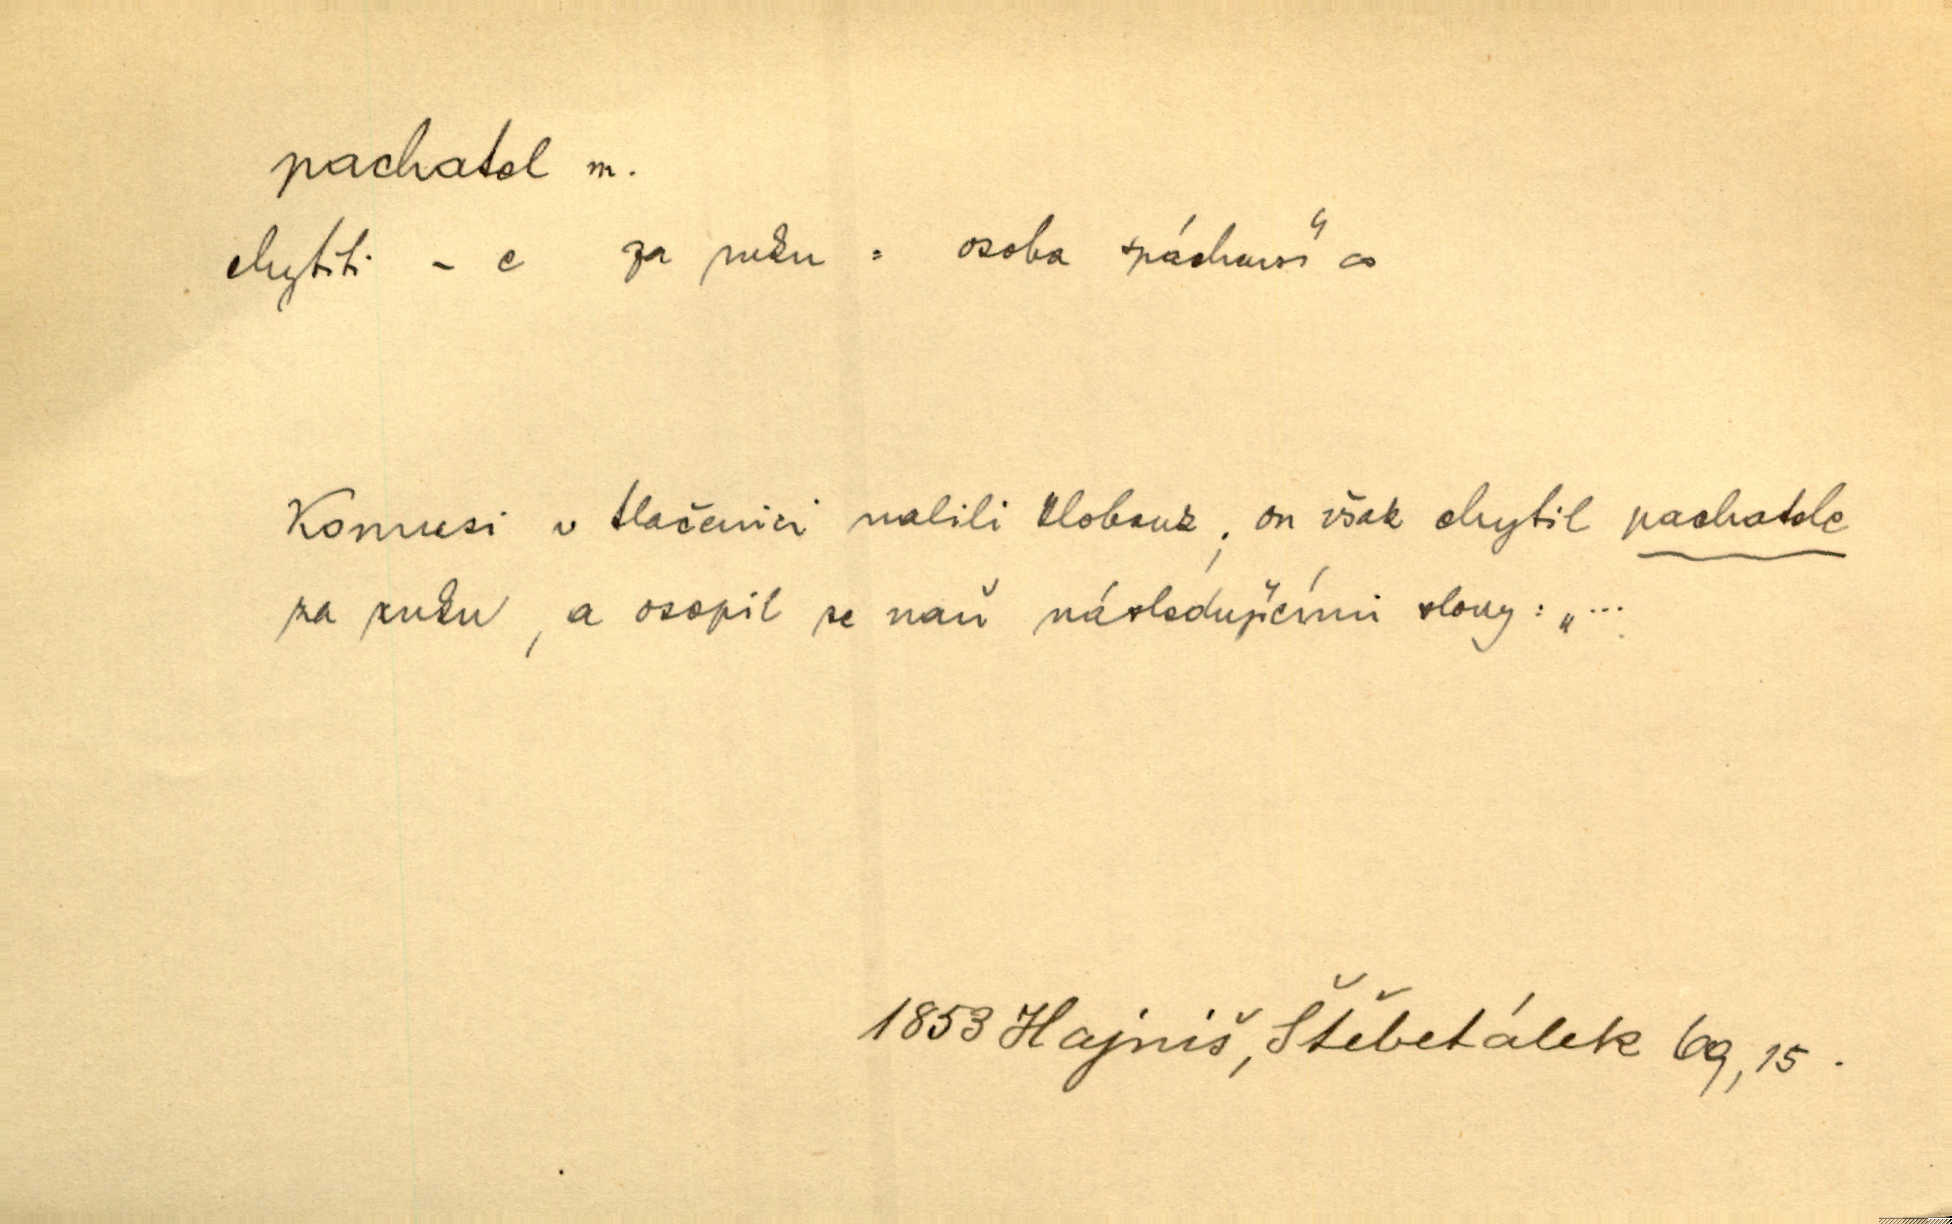 pachatel m.
chytiti - e za ruku = osoba spáchavší co
Komusi v tlačenici nabili klobouk; on však chytil pachatele
za ruku, a osopil se naň následujícími slovy: „...
1853 Hajniš, Štěbetálek 69, 15.